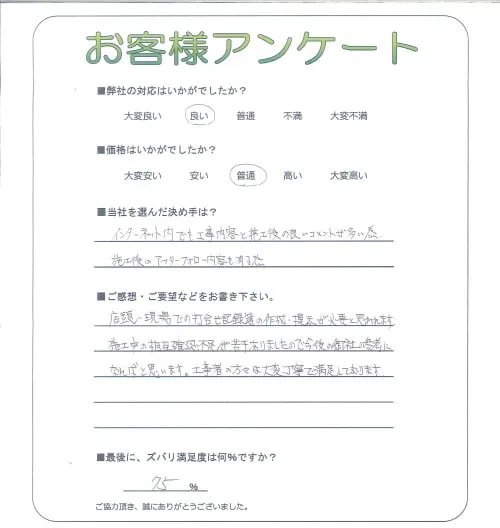 お客様アンケート
■弊社の対応はいかがでしたか？
大変良い 良い 普通 不満 大変不満
■価格はいかがでしたか？
大変安い 安い 普通 高い 大変高い
■当社を選んだ決め手は？
インターネット内でも工事内容と施工後の良いコメントが多い点
施工後のアフターフォロー内容も有る点
■ご感想・ご要望などをお書き下さい。
店頭・現場での打合せ記録簿の作成・提示が必要と思われます
施工中の相互確認不足が若干ありましたので今後の御社の参考に
なればと思います。工事者の方々は大変丁寧で満足しております。
■最後に、ズバリ満足度は何％ですか？
75 ％
ご協力頂き、誠にありがとうございました。